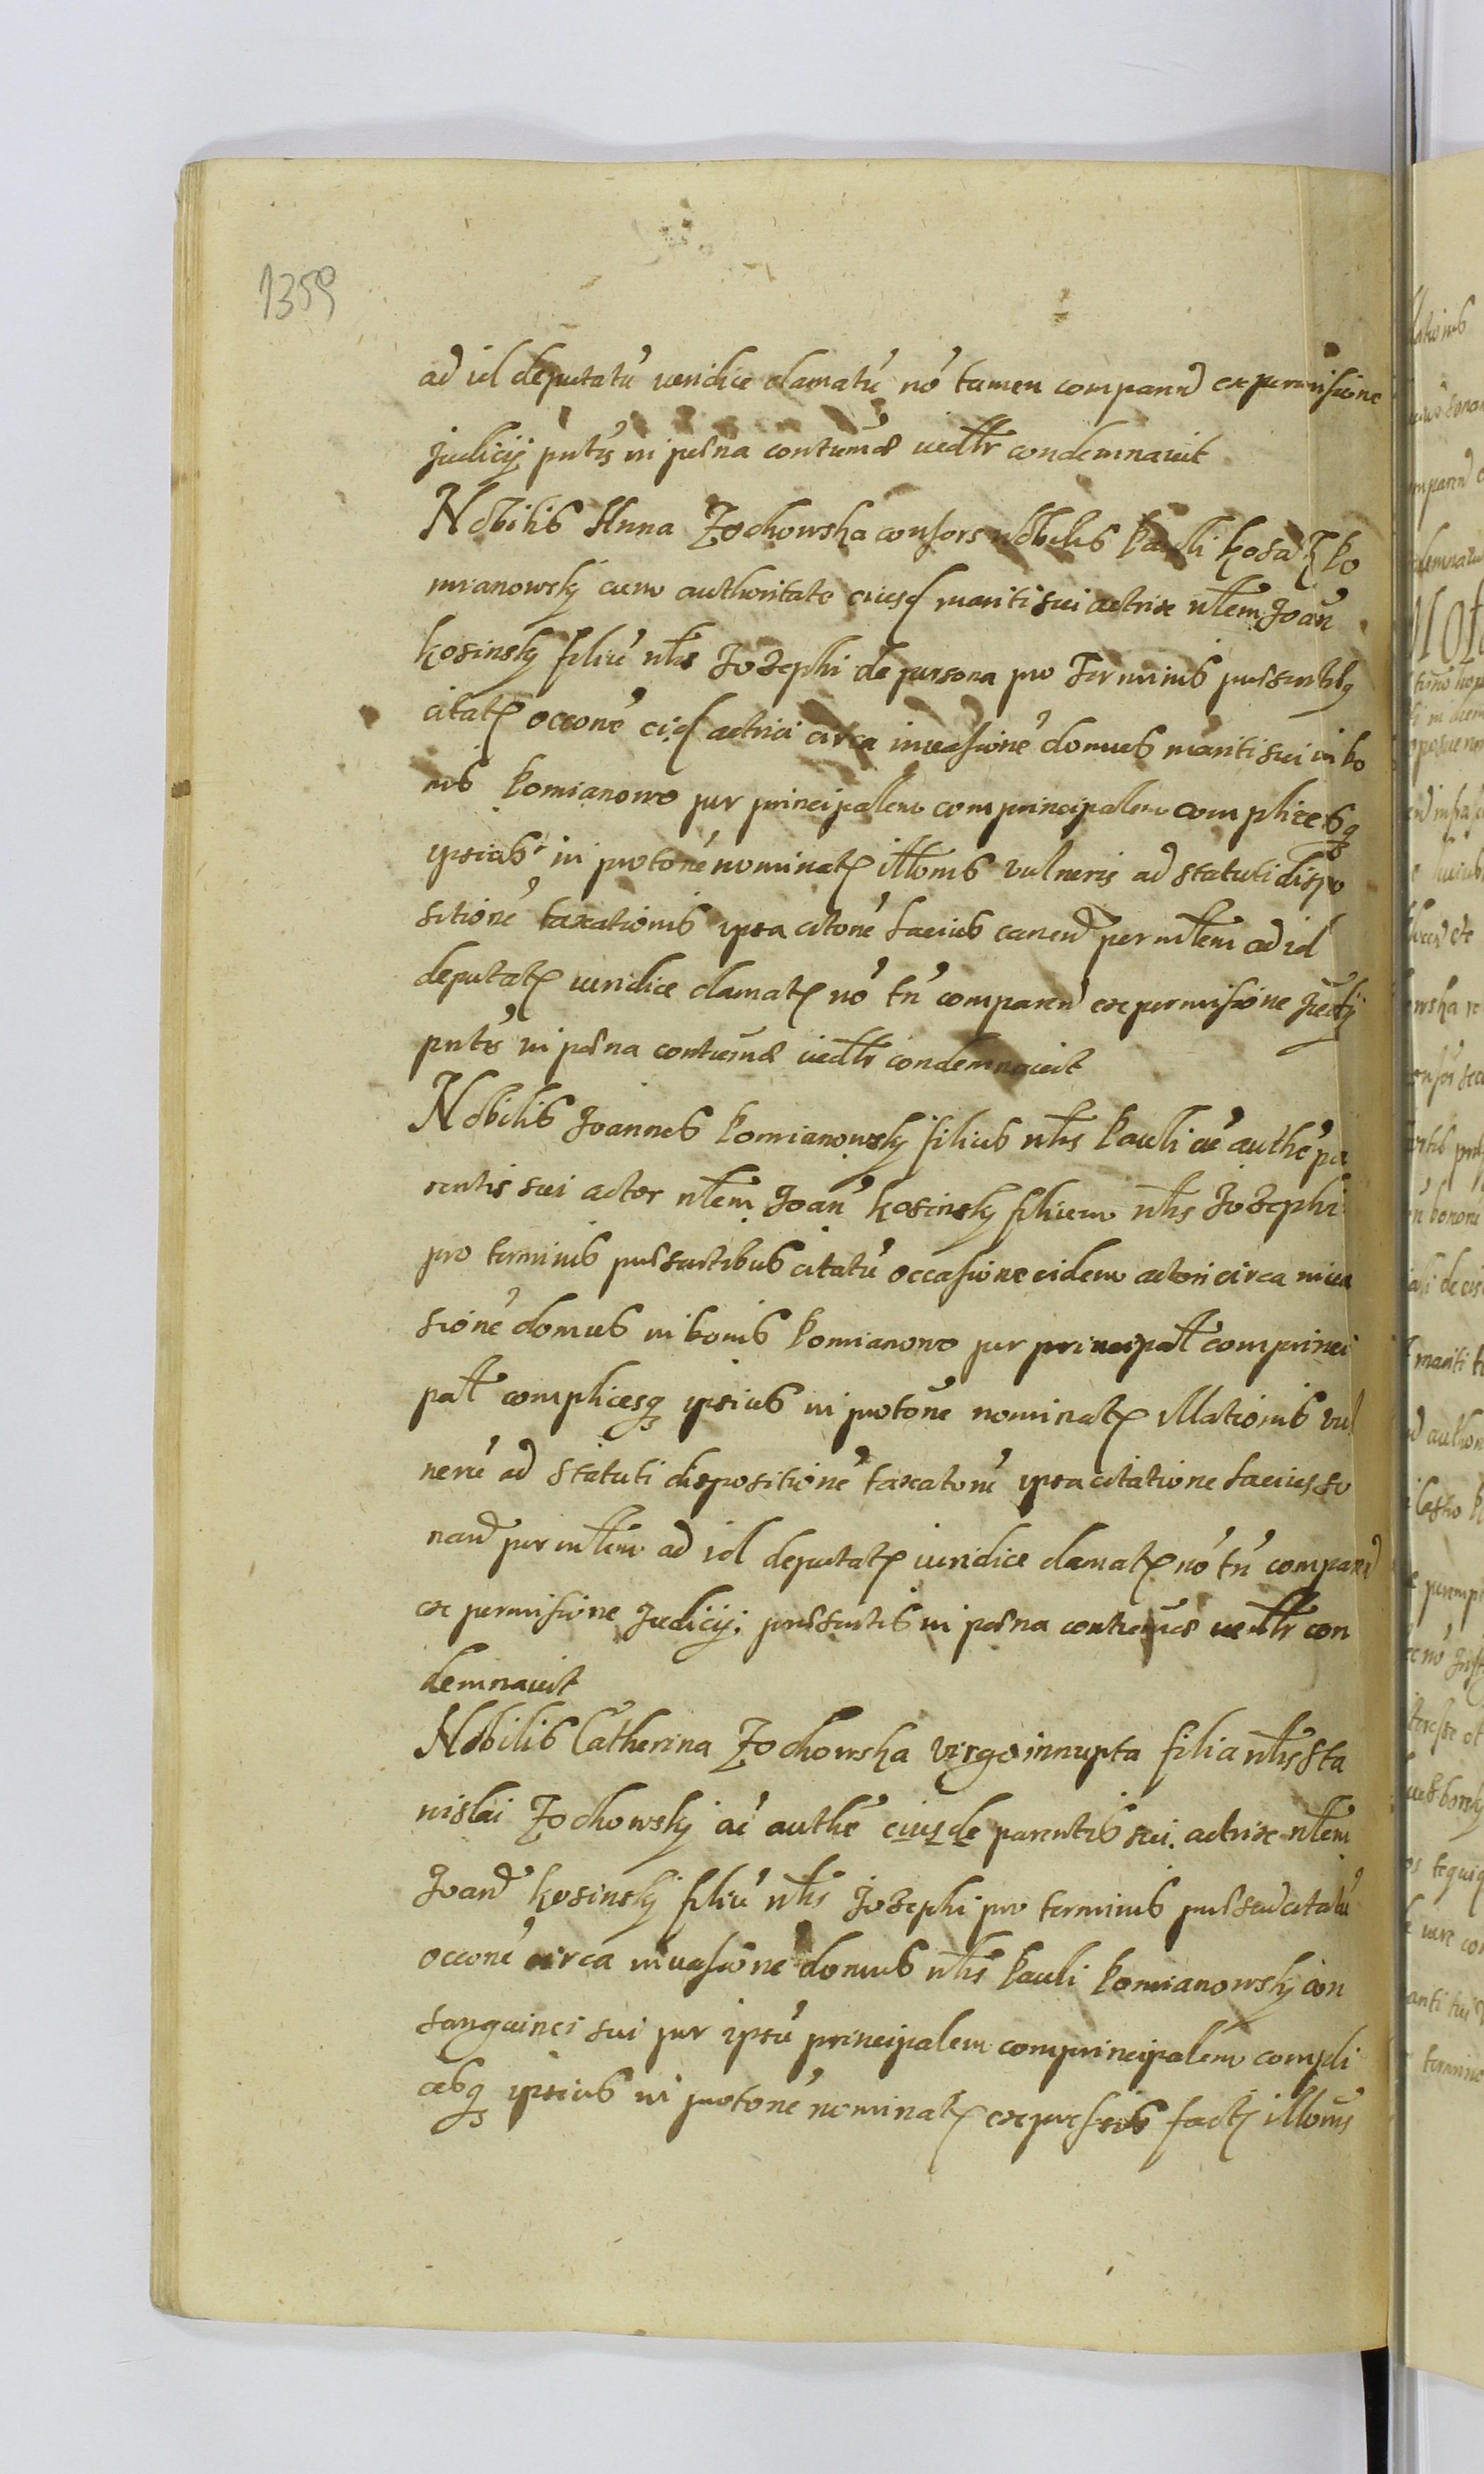 1359
ad id deputatū iuridice clamatū nō tamen comparend ex permissione
Judicij pntis in poena contumac iudltr condemnauit
Nobilis Anna Zochowska consors nobilis Pauli Kosa Po
mianowsky cum authoritate eiusd mariti sui actrix nlem Joan
Kosinsky filiū nlis Jozephi de persona pro Terminis pulsantbq
citat occone eid actrici circa inuasione domus mariti sui in bo
nis Pomianowo per principalem comprincipalem complicesq
ipsius in protone nominat illonis vulneris ad statuti dispo
sitione taxationis ipsa citone lacius canend per mlem ad id
deputat iuridice clamat nō tn comparend ex permissione Judij
pntis in poena contumac iudltr condemnauit
Nobilis Joannes Pomianowsky filius nlis Pauli cū authe pa
rentis sui actor nlem Joan Kosinsky filium nlis Jozephi
pro terminis pulsantibus citatū occasione eidem actori circa inua
sione domus in bonis Pomianowo per principal comprinci
pal complicesq ipsius in protone nominat illationis vul
nerū ad statuti dispositione taxatoni ipsa citatione lacius so
nand per mlem ad id deputat iuridice clamat nō tn comparend
ex permissione Judicij pulsantis in poena contumac iudltr con
demnauit
Nobilis Catherina Zochowska virgo innupta filia nlis Sta
nislai Zochowsky cū authe eiusde parentis sui actrix nlem
Joand Kosinsky filiū nlis Jozephi pro terminis pulsand citatū
occone circa inuasione domus nlis Pauli Pomianowsky con
sanguinei sui per ipsū principalem comprincipalem compli
cesq ipsius in protone nominat expressis fact illonis